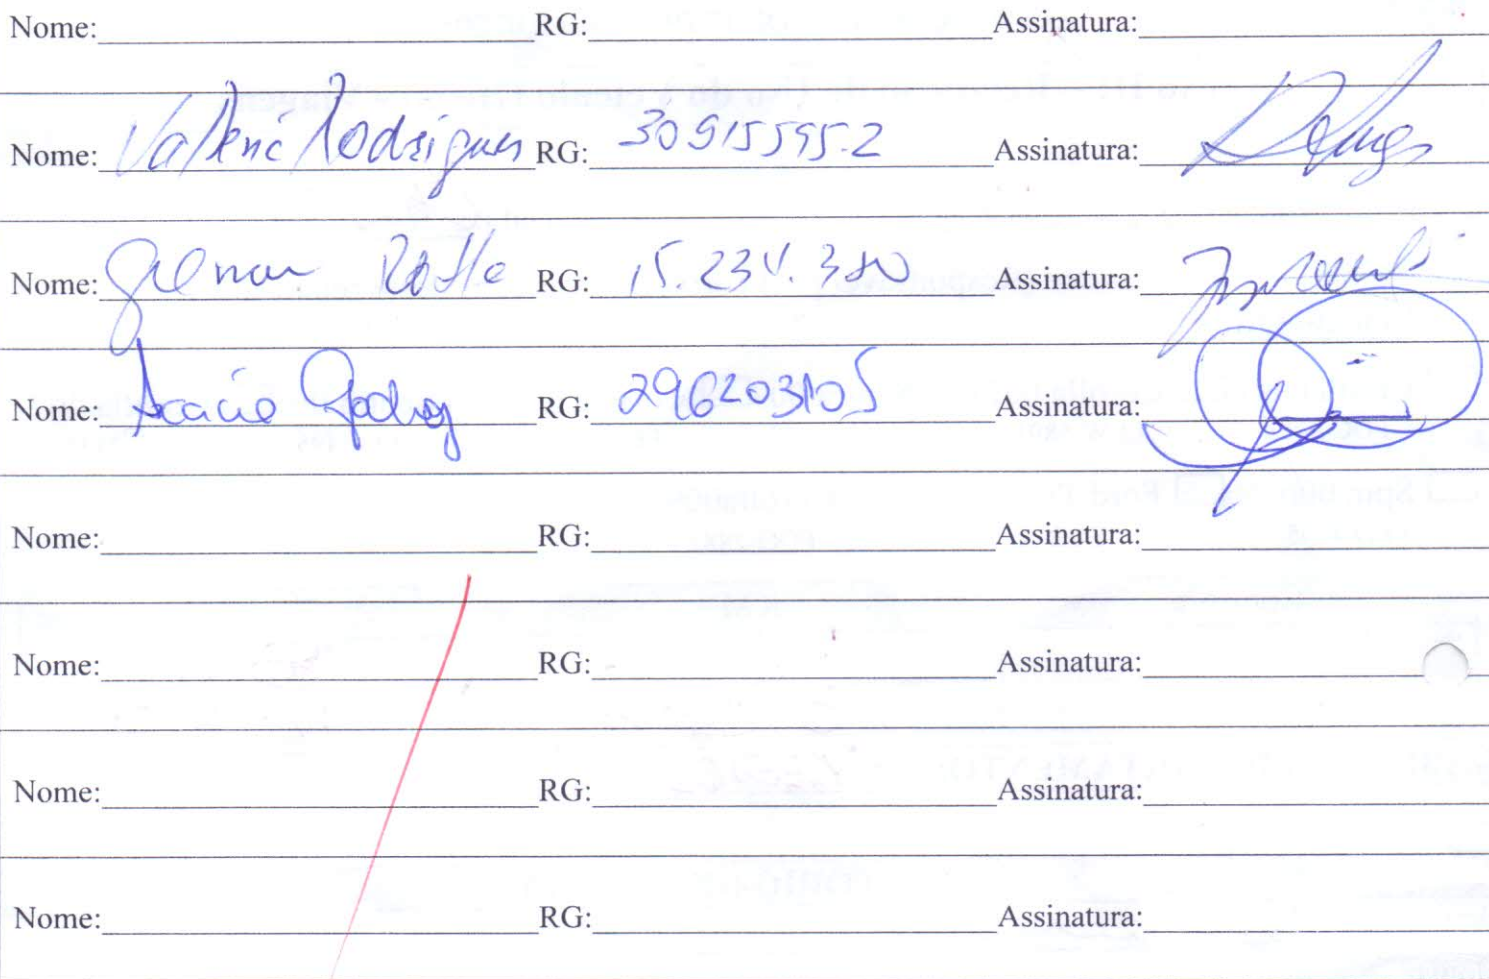 Nome: RG: Assinatura:
Nome: Rodrigues RG: 30915595-2 Assinatura:
Nome: RG: 15.234.380 Assinatura:
Nome: Acacio Godoy RG: 296203105 Assinatura:
Nome: RG: Assinatura:
Nome: RG: Assinatura:
Nome: RG: Assinatura:
Nome: RG: Assinatura: